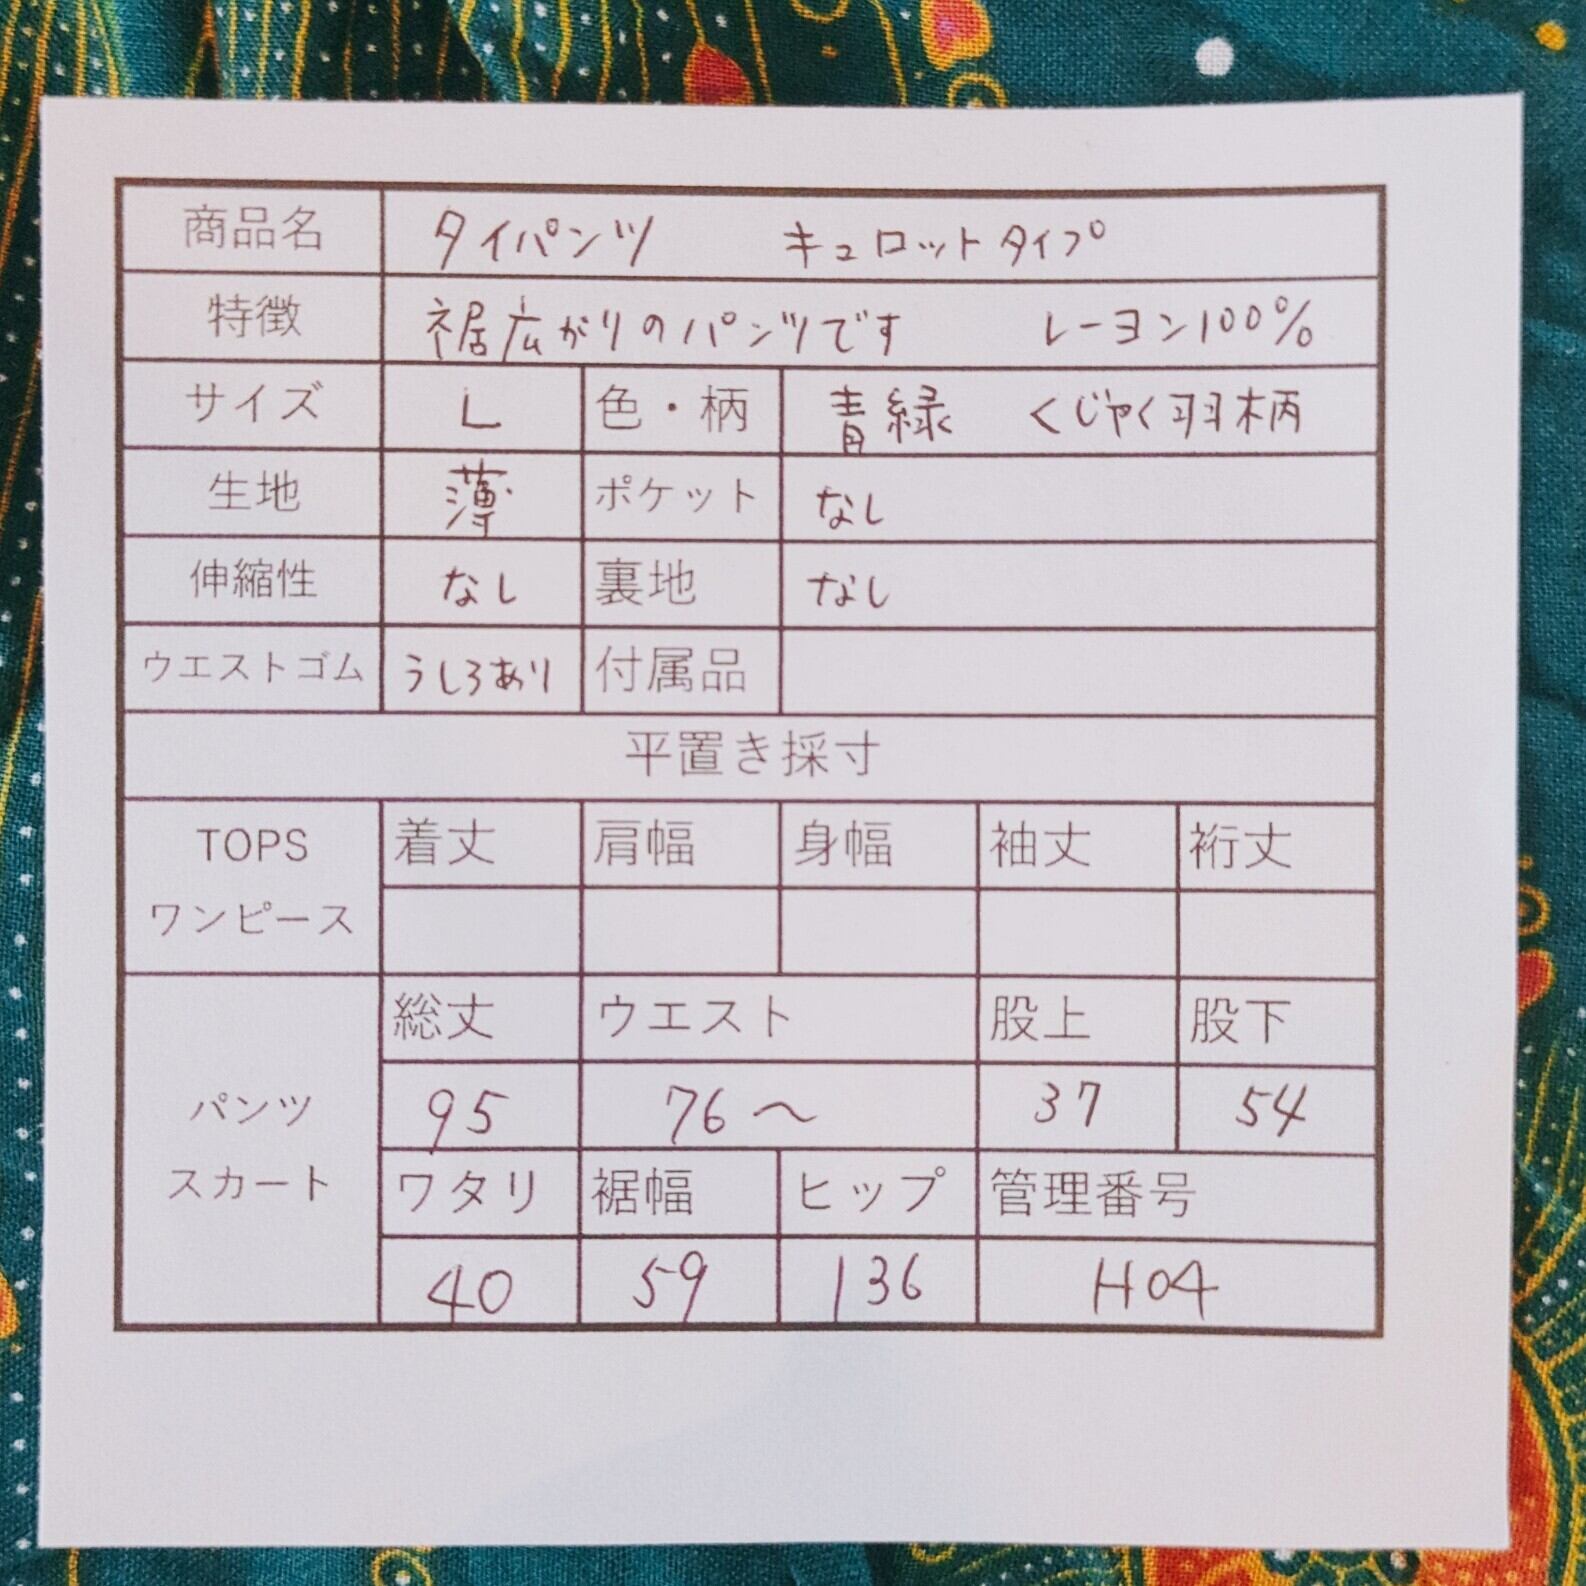 商品名 タイパンツ キュロットタイプ
特徴 裾広がりのパンツです レーヨン100%
サイズ L 色・柄 青緑 くじゃく羽柄
生地 薄 ポケット なし
伸縮性 なし 裏地 なし
ウエストゴム うしろあり 付属品
平置き採寸
TOPS 着丈 肩幅 身幅 袖丈 裄丈
ワンピース
総丈 ウエスト 股上 股下
パンツ 95 76〜 37 54
スカート ワタリ 裾幅 ヒップ 管理番号
40 59 136 H04